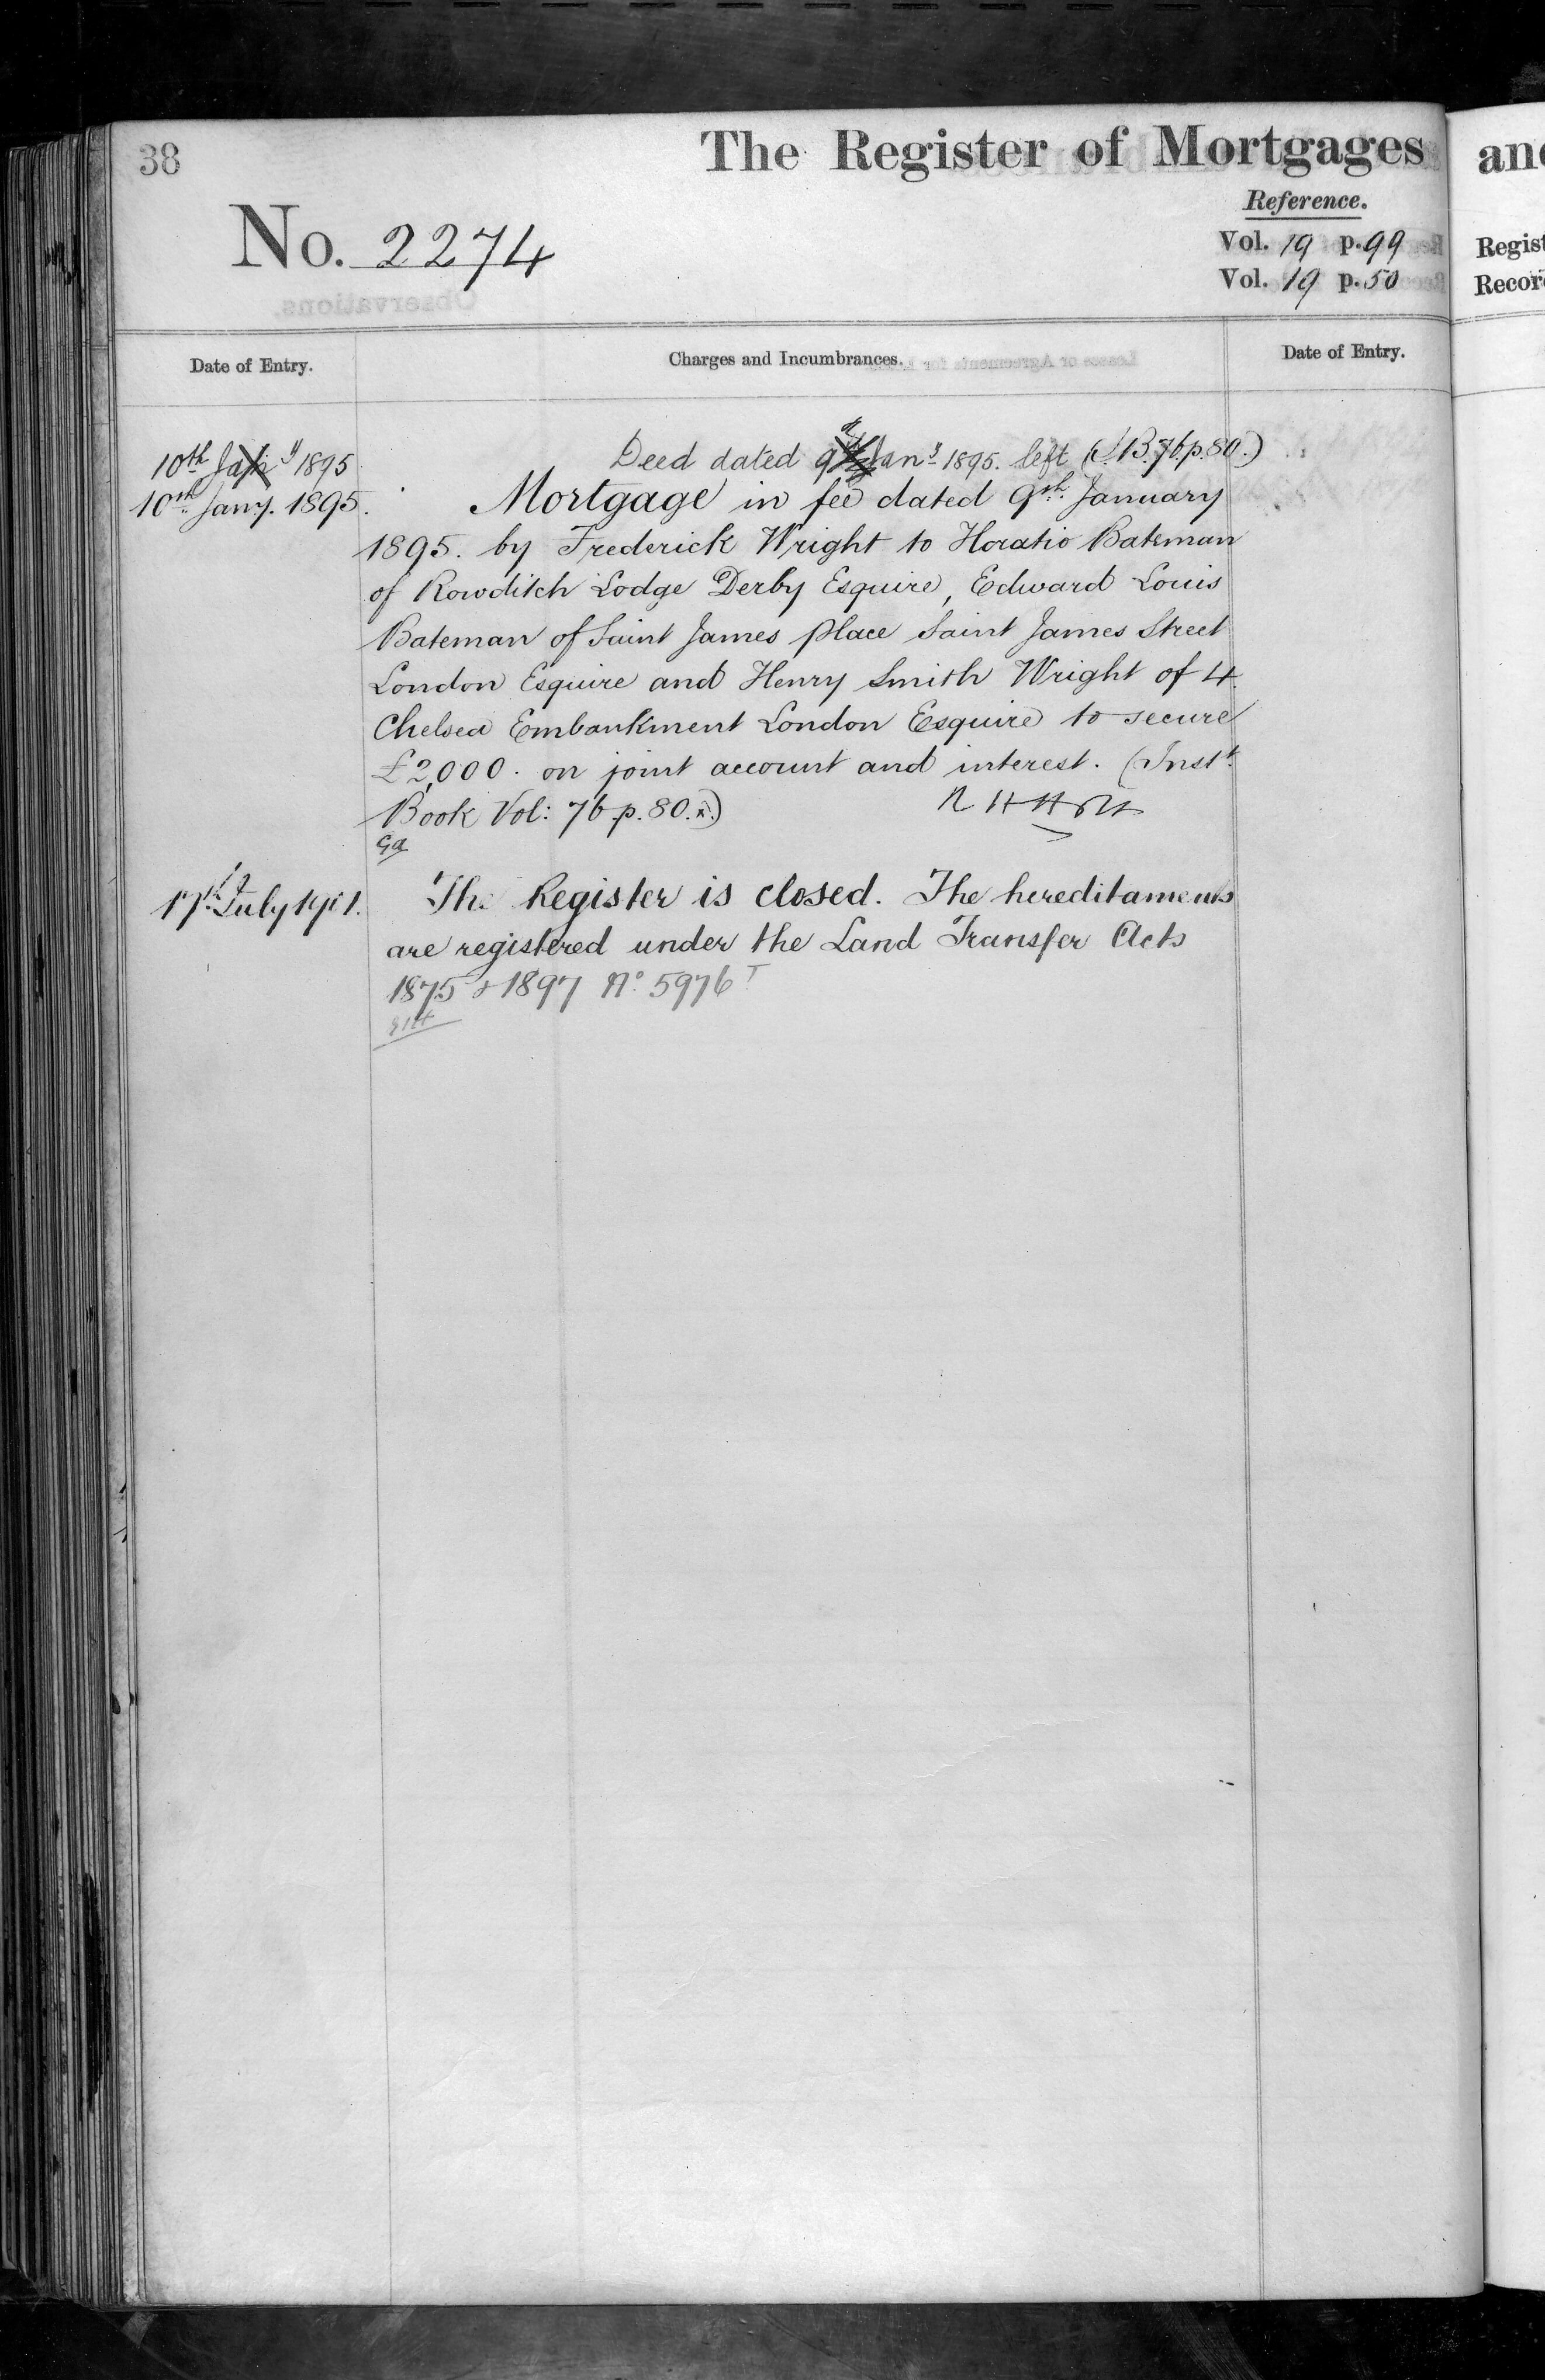 38
The Register of Mortgages
Reference.
No. 2274
Vol. 19 p. 99
Vol. 19 p. 50
an
Regist
Recor
Date of Entry.
Charges and Incumbrances.
Date of Entry.
10th Jany 1895
Deed dated 9th Jany 1895. left (I.B. 76. p. 80.)
10th Jany. 1895.
Mortgage in fee dated 9th January
1895. by Frederick Wright to Horatio Bateman
of Rowditch Lodge Derby Esquire, Edward Louis
Bateman of Saint James place Saint James Street
London Esquire and Henry Smith Wright of 4.
Chelsea Embankment London Esquire to secure
£2,000. on joint account and interest. (Instt.
Book Vol: 76 p. 80.)
17th July 1911.
The Register is closed. The hereditaments
are registered under the Land Transfer Acts
1875 & 1897 No. 5976T